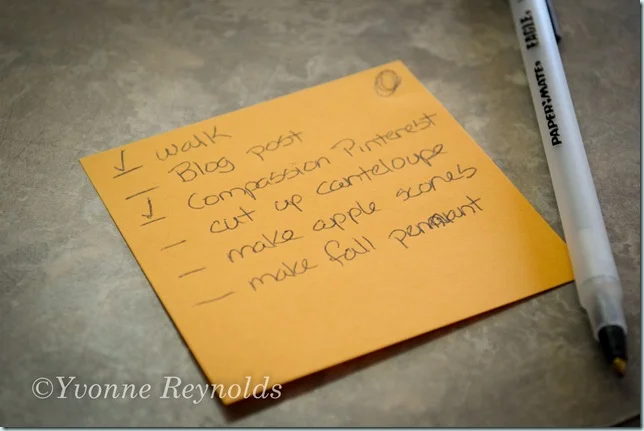 ✓ walk
_ Blog post
✓ Compassion Pinterest
_ cut up canteloupe
_ make apple scones
_ make fall pennant
PAPER:MATE® EAGLE®
©Yvonne Reynolds